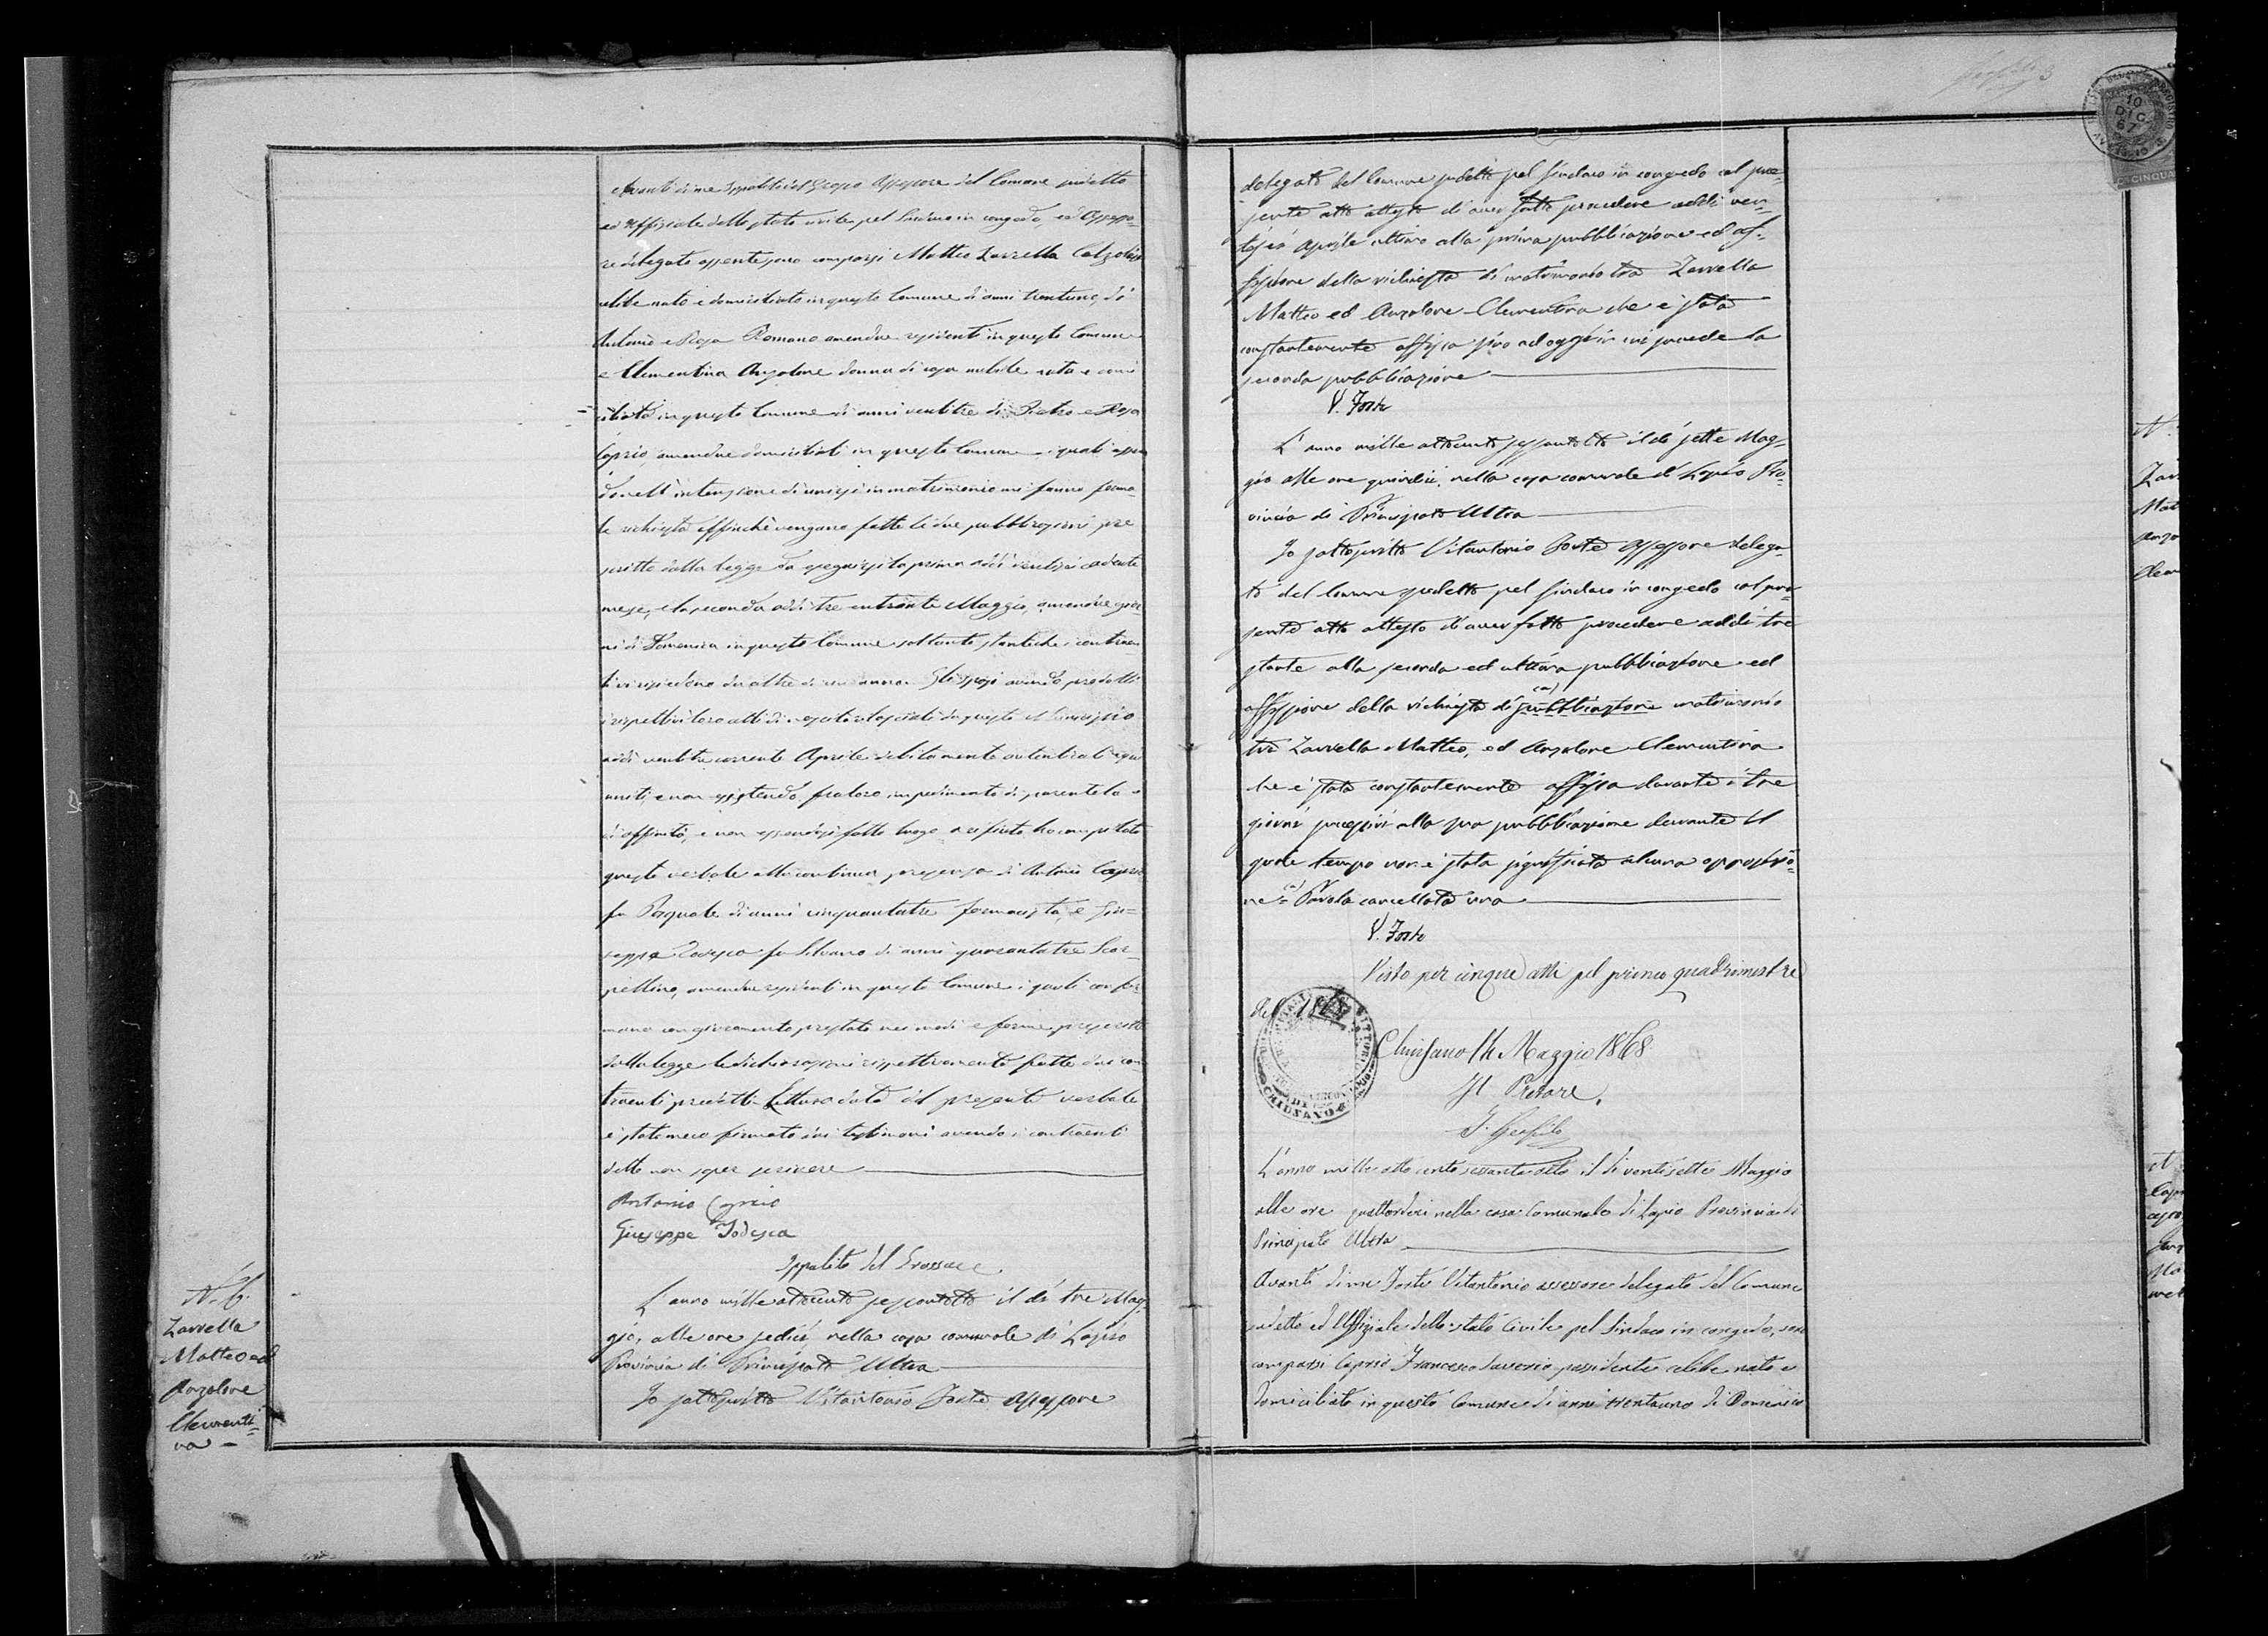 Avanti di me Ippolito del Grosso Assessore del Comune sudetto
ed Uffiziale dello stato civile pel Sindaco in congedo, ed Assesso-
re delegato assente, sono comparsi Matteo Zarrella Calzolaio
celibe nato e domiciliato in questo Comune di anni trentuno, di
Antonio e Rosa Romano amendue residenti in questo Comune
e Clementina Anzalone donna di casa nubile nata e domi
ciliata in questo Comune di anni ventitre di Pietro e Rosa
Caprio, amendue domiciliati in questo Comune i quali aven
do nell'intenzione di unirsi in matrimonio mi fanno forma-
le richiesta affinchè vengano fatte le due pubblicazioni pre
scritte dalla legge da eseguirsi la prima addì ventisei cadente
mese, e la seconda addì tre entrante Maggio, amendue gior
ni di Domenica in questo Comune soltanto stantechè i contraen
ti vi risiedono da oltre di un anno. Gli sposi avendo prodotti
i rispettivi loro atti di nascita rilasciati da questo Municipio
addì ventitre corrente Aprile debitamente autenticati e qui
uniti, e non esistendo fra loro impedimento di parentela o
di affinità, e non essendosi fatto luogo a rifiuto ho compilato
questo verbale alla continua presenza di Antonio Caprio
fu Pasquale di anni cinquantatre farmacista, e Giu=
seppe Todesca fu Silvano di anni quarantatre Scar-
pellino, amendue residenti in questo Comune i quali confer
mano con giuramento prestato nei modi e forme prescritte
dalla legge le dichiarazioni rispettivamente fatte dai con
traenti predetti. Lettura data del presente verbale
è stato meco firmato dai testimoni avendo i contraenti
detto non saper scrivere
Antonio Caprio
Giuseppe Todesca
Ippolito del Grosso
N. 6.
Zarrella
Matteo ed
Anzalone
Clementi=
na
L'anno mille ottocento sessantotto il dì tre Mag-
gio, alle ore sedici nella casa comunale di Lapio
Provincia di Principato Ultra
Io sottoscritto Vitantonio Forte Assessore
delegato del Comune sudetto pel Sindaco in congedo col pre=
sente atto attesto di aver fatto procedere addì ven-
tisei Aprile ultimo alla prima pubblicazione ed af-
fissione della richiesta di matrimonio tra Zarrella
Matteo ed Anzalone Clementina che è stata
constantemente affissa sino ad oggi in cui procede la
seconda pubblicazione
V. Forte
L'anno mille ottocento sessantotto il dì sette Mag-
gio alle ore quindici nella casa comunale di Lapio Pro-
vincia di Principato Ultra
Io sottoscritto Vitantonio Forte Assessore delega-
to del Comune sudetto pel Sindaco in congedo col pre=
sente atto attesto di aver fatto procedere addì tre
stante alla seconda ed ultima pubblicazione ed
affissione della richiesta di (a) pubblicazione matrimonio
tra Zarrella Matteo, ed Anzalone Clementina
che è stata constantemente affissa durante i tre
giorni successivi alla sua pubblicazione durante il
quale tempo non è stata significata alcuna opposizio-
ne = (a) Parola cancellata una
V. Forte
Visto per cinque atti pel primo quadrimestre
del 1868
Chiusano 14 Maggio 1868
Il Pretore.
L'anno mille otto cento sessantaotto il dì ventisette Maggio
alle ore quattordici nella casa Comunale di Lapio Provincia di
Principato Ultra
Avanti di me Forte Vitantonio assessore delegato del Comune
sudetto ed Uffiziale dello stato Civile pel Sindaco in congedo, sono
comparsi Caprio Francesco Saverio possidente celibe nato e
domiciliato in questo Comune di anni trentauno di Domenico
10
DIC.
67
CINQUA
CHIUSANO